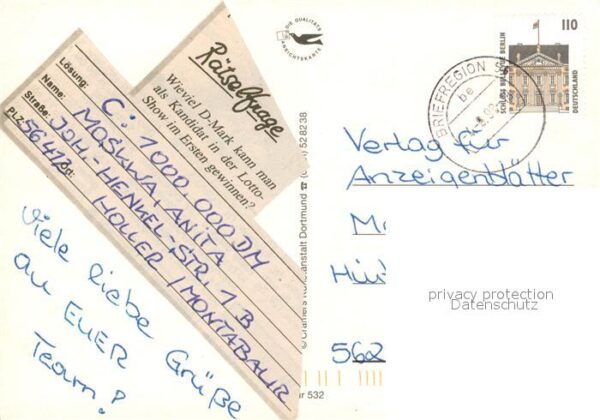 DIE QUALITÄTS
ANSICHTSKARTE
Rätselfrage
Wieviel D-Mark kann man
als Kandidat in der Lotto-
Show im Ersten gewinnen?
Lösung: C: 1000 000 DM
Name: MOSKWA, ANITA
Straße: JOH.-HENKEL-STR. 1B
PLZ/Ort: 56412 HOLLER / MONTABAUR
Viele liebe Grüße
an EUER
Team!
Dortmund ☎ 52 82 38
532
BRIEFREGION
110
SCHLOSS BERLIN
DEUTSCHLAND
Verlag für
Anzeigenblätter
562
privacy protection
Datenschutz